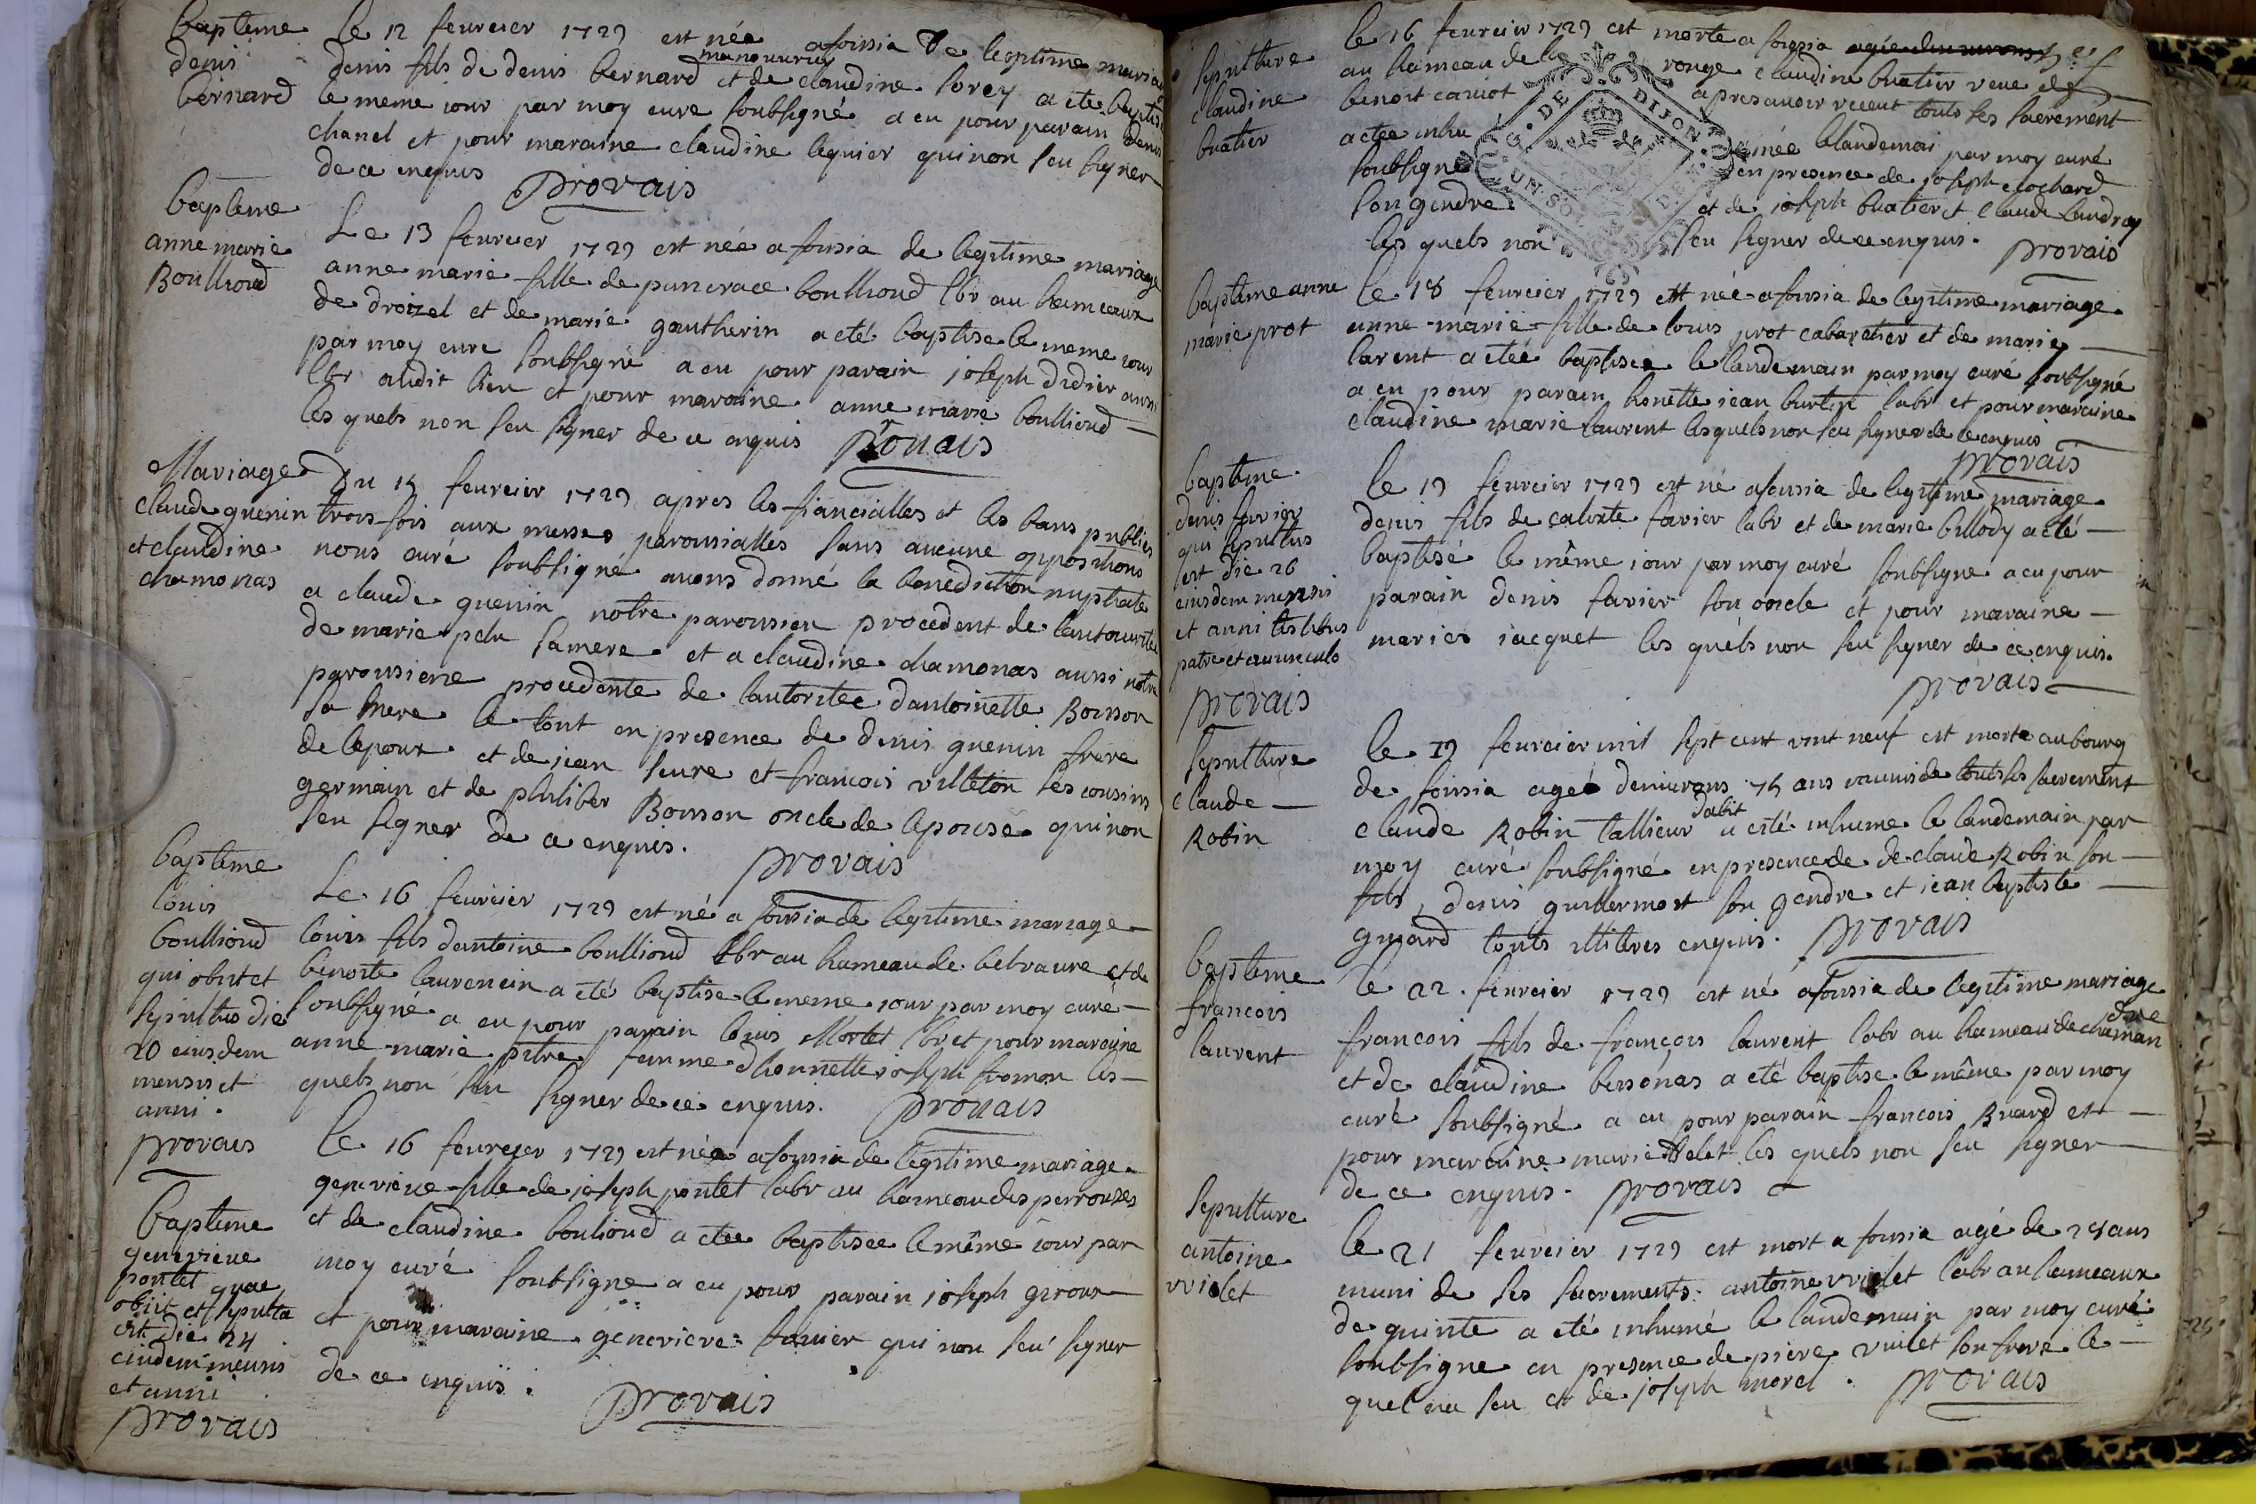 bapteme
denis
bernard
Le 12 feureier 1729 est née a foissia de legitime mariage
manouuruy
denis fils de denis bernard et de claudine sorey a ete baptisé
le meme iour par moy cure soubsigné a eu pour parain denis
chanel et pour maraine claudine lequier qui non seu signer
de ce enquis provais
bapteme
anne marie
Boulliond
Le 13 feureier 1729 est née a foissia de legitime mariage
anne marie fille de pancrace boulliond lbr au hameaux
de droizel et de marie gautherin a eté baptise le meme iour
par moy cure soubsigné a eu pour parain joseph didier aussi
lbr audit lieu et pour maraine anne marie boulliond
les quels non seu signer de ce enquis provais
Mariage
claude quenin
et claudine
chamonas
Du 15 feureier 1729 apres les fiancialles et les bans publies
trois fois aux messes paroissialles sans aucune oppositions
nous curé soubsigné auons donné la benediction nuptiale
a claude quenin notre paroissien procedent de lautourite
de marie pelu sa mere et a claudine chamonas aussi notre
paroissiene procedente de lautoritee dantoinette Boisson
sa mere le tout en presence de denis quenin frere
de lepoux et de jean seure et francois villeton ses cousins
germain et de philiber Boisson oncle de lepouse qui non
seu signer de ce enquis. provais
bapteme
louis
boulliond
qui obiit et
sepultus die
20 eiusdem
mensis et
anni.
provais
Le 16 feureier 1729 est né a foissia de legitime mariage
louis fils dantoine boulliond lbr au hameau de belvaure et de
benoite laurencin a eté baptise le meme iour par moy curé
soubsigné a eu pour parain louis Morlet lbr et pour maraine
anne marie pitre femme dhonnette joseph fromon les
quels non seu signer de ce enquis. provais
bapteme
geneviene
pontet quae
obiit et sepulta
est die 24
eiusdem mensis
et anni
provais
le 16 feureier 1729 est née a foissia de legitime mariage
geneviene fille de joseph pontet labr au hameau des perrouzes
et de claudine bouliond a etee baptisee le même iour par
moy curé soubsigne a eu pour parain joseph giroux
et pour maraine genevieve fauier qui non seu signer
de ce enquis. provais
sepulture
claudine
buatier
le 16 feureier 1729 est morte a foissia
au hameau de la rouge claudine buatier veue de
benoit caniot apres auoir receut touts ses sacrement
a etee inhumée le landemai par moy curé
soubsigne en presence de joseph cochard
son gendre et de joseph buatier et claude landray
les quels non seu signer de ce enquis. provais
bapteme anne
marie prot
le 18 feureier 1729 est née a foissia de legitime mariage
anne marie fille de louis prot cabaretier et de marie
larent a eteé baptisee le landemain par moy curé soubsigné
a eu pour parain honette jean burtin labr et pour maraine
claudine marie laurent lesquels non seu signer de ce enquis
provais
bapteme
denis favier
qui sepultus
est die 26
eiusdem mensis
et anni testibus
patre et auunculo
provais
le 19 feureier 1729 est né a foissia de legitime mariage
denis fils de calixte favier labr et de marie billody a eté
baptisé le même iour par moy curé soubsigne a eu pour
parain denis favier son oncle et pour maraine
maries jacquet les quels non seu signer de ce enquis.
provais
sepulture
claude
Robin
le 19 feureier mil sept cent vint neuf est morte au bourg
de foissia ageé denuirons 75 ans munis de touts ses sacrement
dabit
claude Robin tallieur a esté inhume le landemain par
moy curé soubsigné en presence de de claude Robin son
fils, denis guillermost son gendre et jean baptiste
guiard touts illiteres enquis. provais
bapteme
francois
laurent
le 22. feureier 1729 est né a foissia de legitime mariage
francois fils de françois laurent labr au hameau de chaman
et de claudine bersonas a eté baptise le même par moy
curé soubsigné a eu pour parain francois Buard et
pour maraine marie les quels non seu signer
de ce enquis. provais
sepulture
antoine
vviolet
le 21 feureier 1729 est mort a foissia agé de 25 ans
muni de ses sacrements antoine vviolet labr au hameaux
de quinte a eté inhumé le landemain par moy curé
soubsigne en presence de piere viulet son frere le
quel na seu et de joseph morel. provais
G. DE DIJON
UN SO